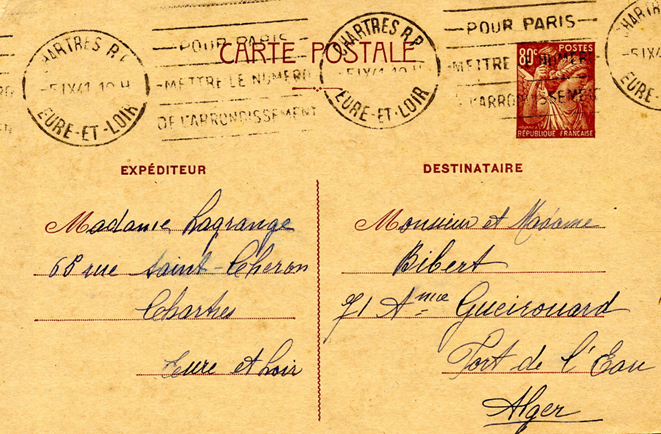 CHARTRES R.P.
5 IX 41 10 H
EURE-ET-LOIR
POUR PARIS
METTRE LE NUMERO
DE L'ARRONDISSEMENT
CARTE POSTALE
CHARTRES R.P.
5 IX 41 10 H
EURE-ET-LOIR
POUR PARIS
METTRE LE NUMERO
L'ARRONDISSEMENT
80c POSTES
RÉPUBLIQUE FRANÇAISE
CHARTRES
5 IX 41
EURE
EXPÉDITEUR
Madame Lagrange
68 rue Saint-Cheron
Chartres
Eure et Loir
DESTINATAIRE
Monsieur et Madame
Bibert
71 Amie Gueirouard
Fort de l'Eau
Alger